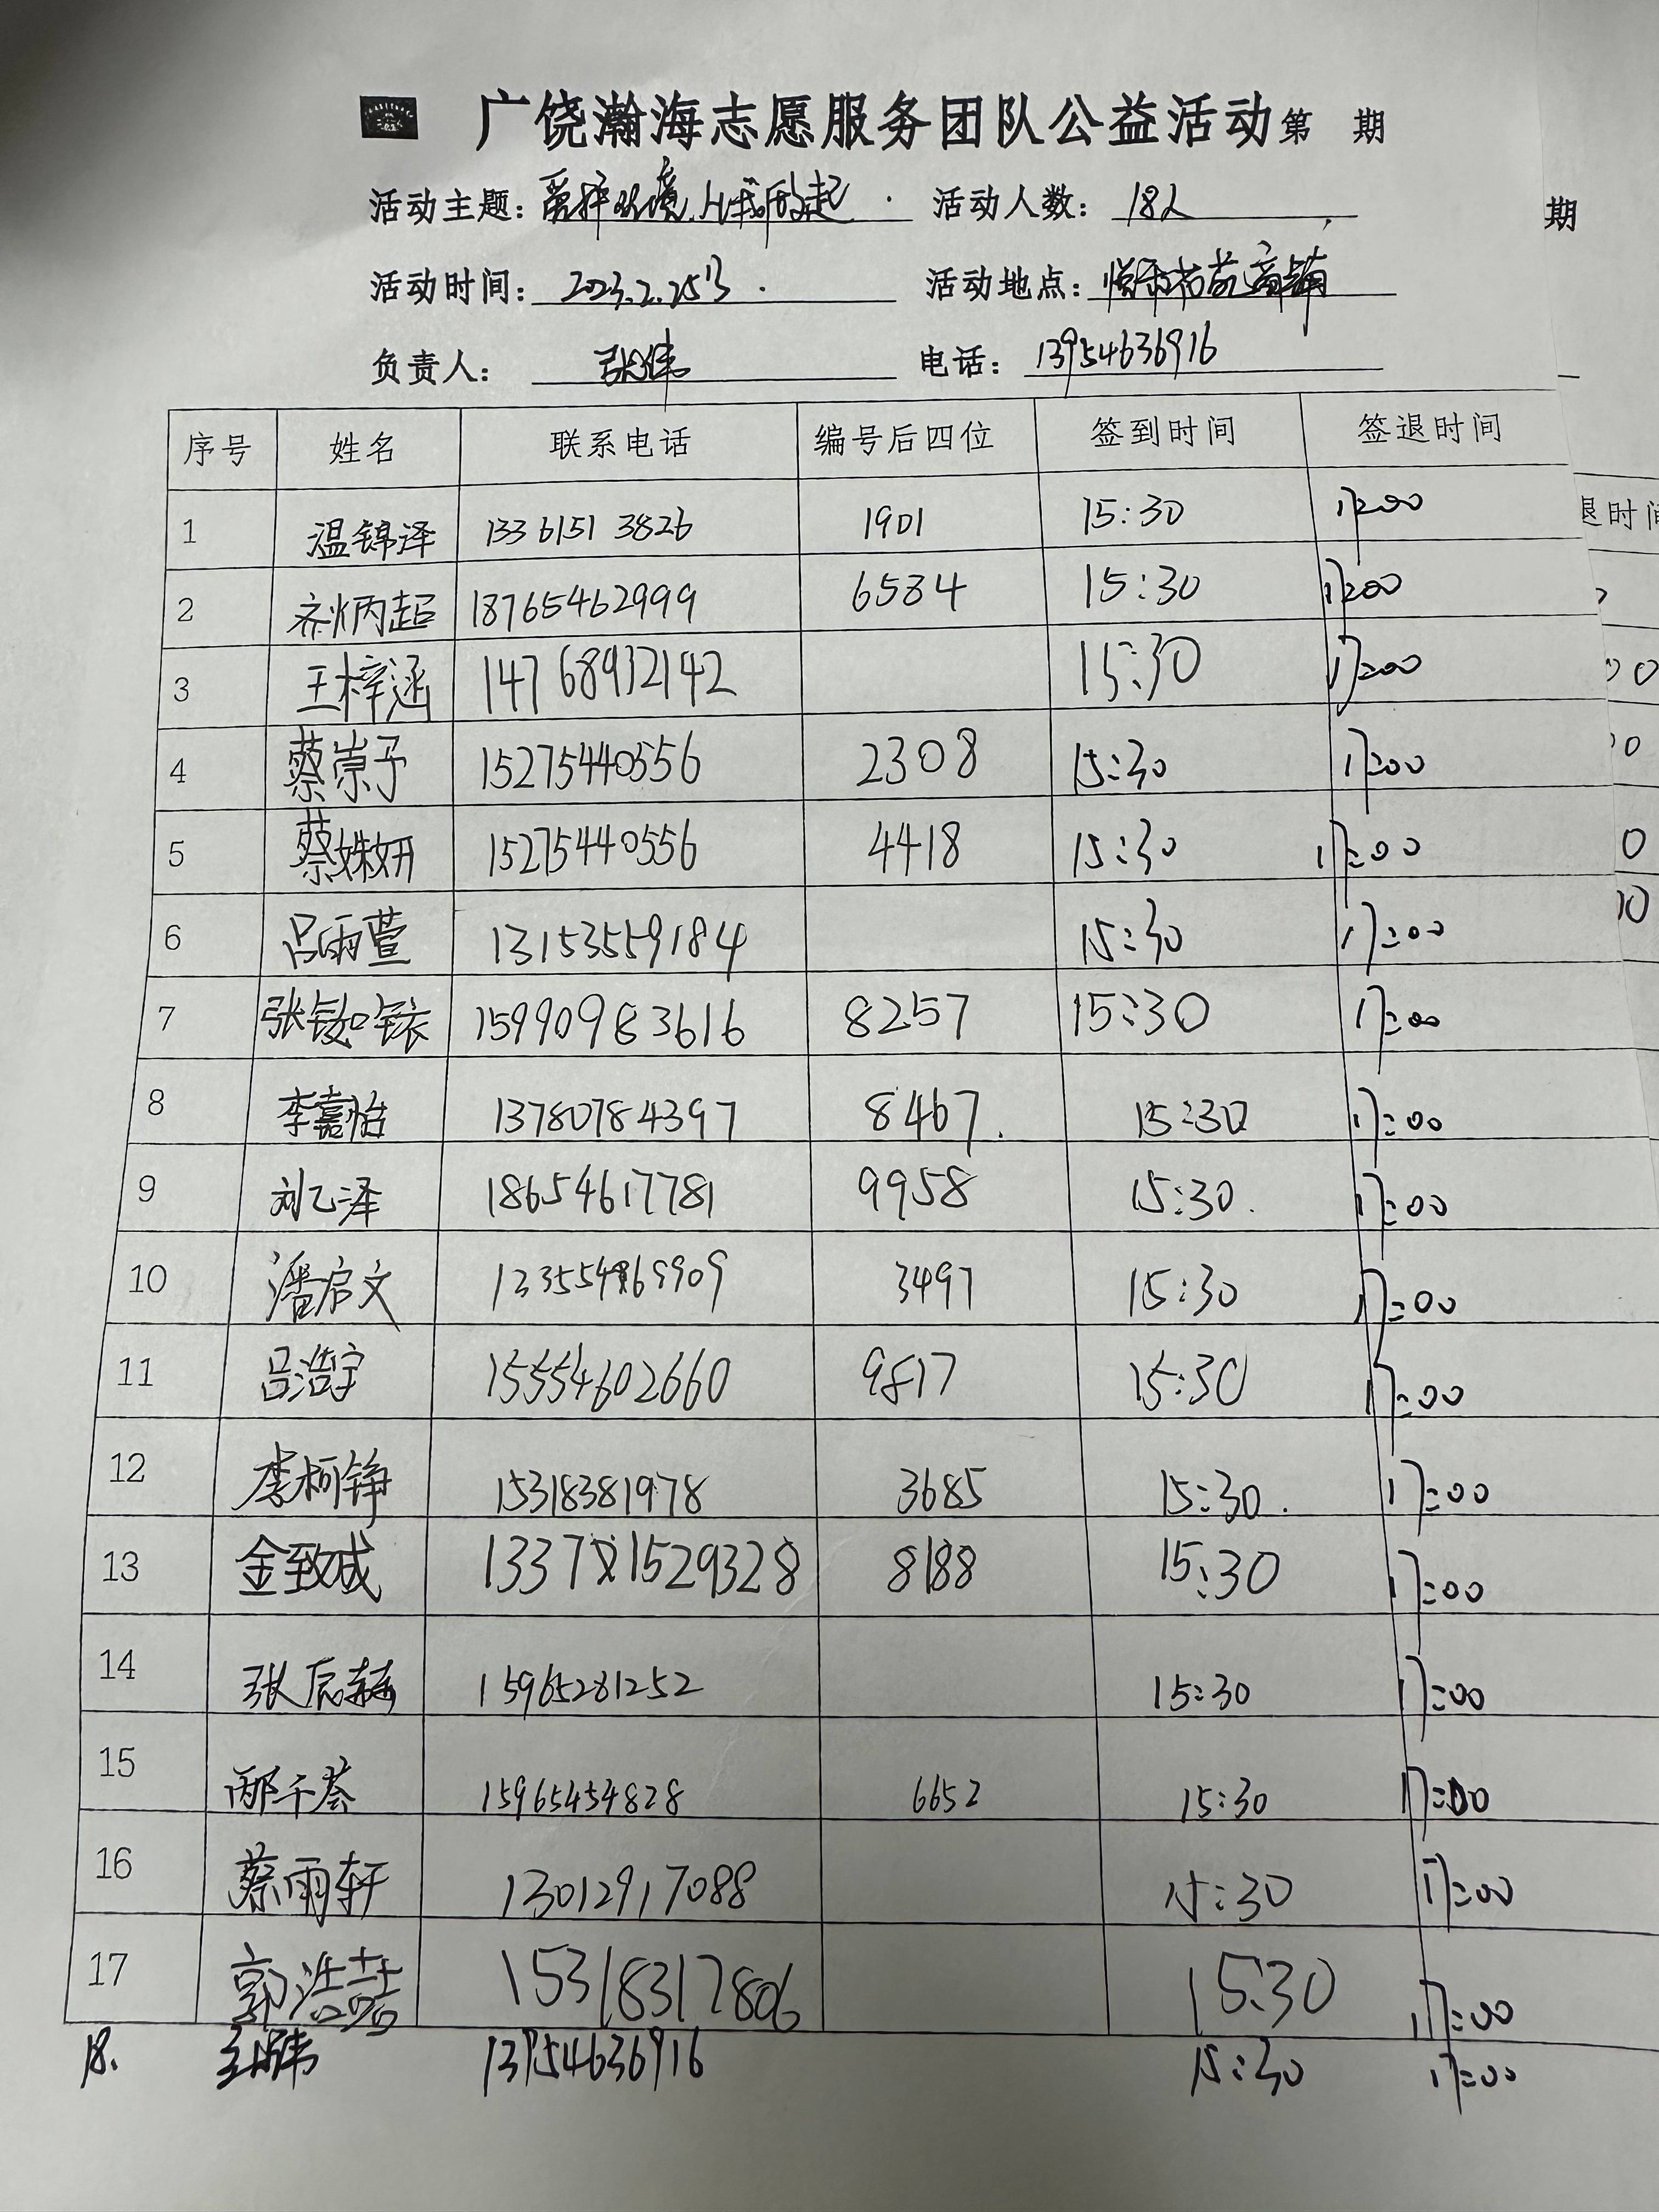 广饶瀚海志愿服务团队公益活动第 期
活动主题：爱护环境.从我做起. 活动人数：18人
活动时间：2023.2.25日. 活动地点：商铺
负责人：张伟 电话：13954636916
序号 姓名 联系电话 编号后四位 签到时间 签退时间
1 温锦泽 13361513826 1901 15:30 17:00
2 齐炳超 18765462999 6584 15:30 17:00
3 王梓涵 14768932142 15:30 17:00
4 蔡崇予 15275440556 2308 15:30 17:00
5 蔡姝妍 15275440556 4418 15:30 17:00
6 吕雨萱 13153559184 15:30 17:00
7 张铵如铱 15990983616 8257 15:30 17:00
8 李嘉怡 13780784397 8467. 15:30 17:00
9 刘乙泽 18654617781 9958 15:30. 17:00
10 潘启文 3497 15:30 17:00
11 吕浩宇 15554602660 9817 15:30 17:00
12 李柯铮 15318381978 3685 15:30. 17:00
13 金致成 13371529328 8188 15:30 17:00
14 张辰 15965281252 15:30 17:00
15 邴千荟 15965454828 6652 15:30 17:00
16 蔡雨轩 13012917088 15:30 17:00
17 郭浩喆 15318317806 15:30 17:00
18. 13954636916 15:30 17:00
期
退时间